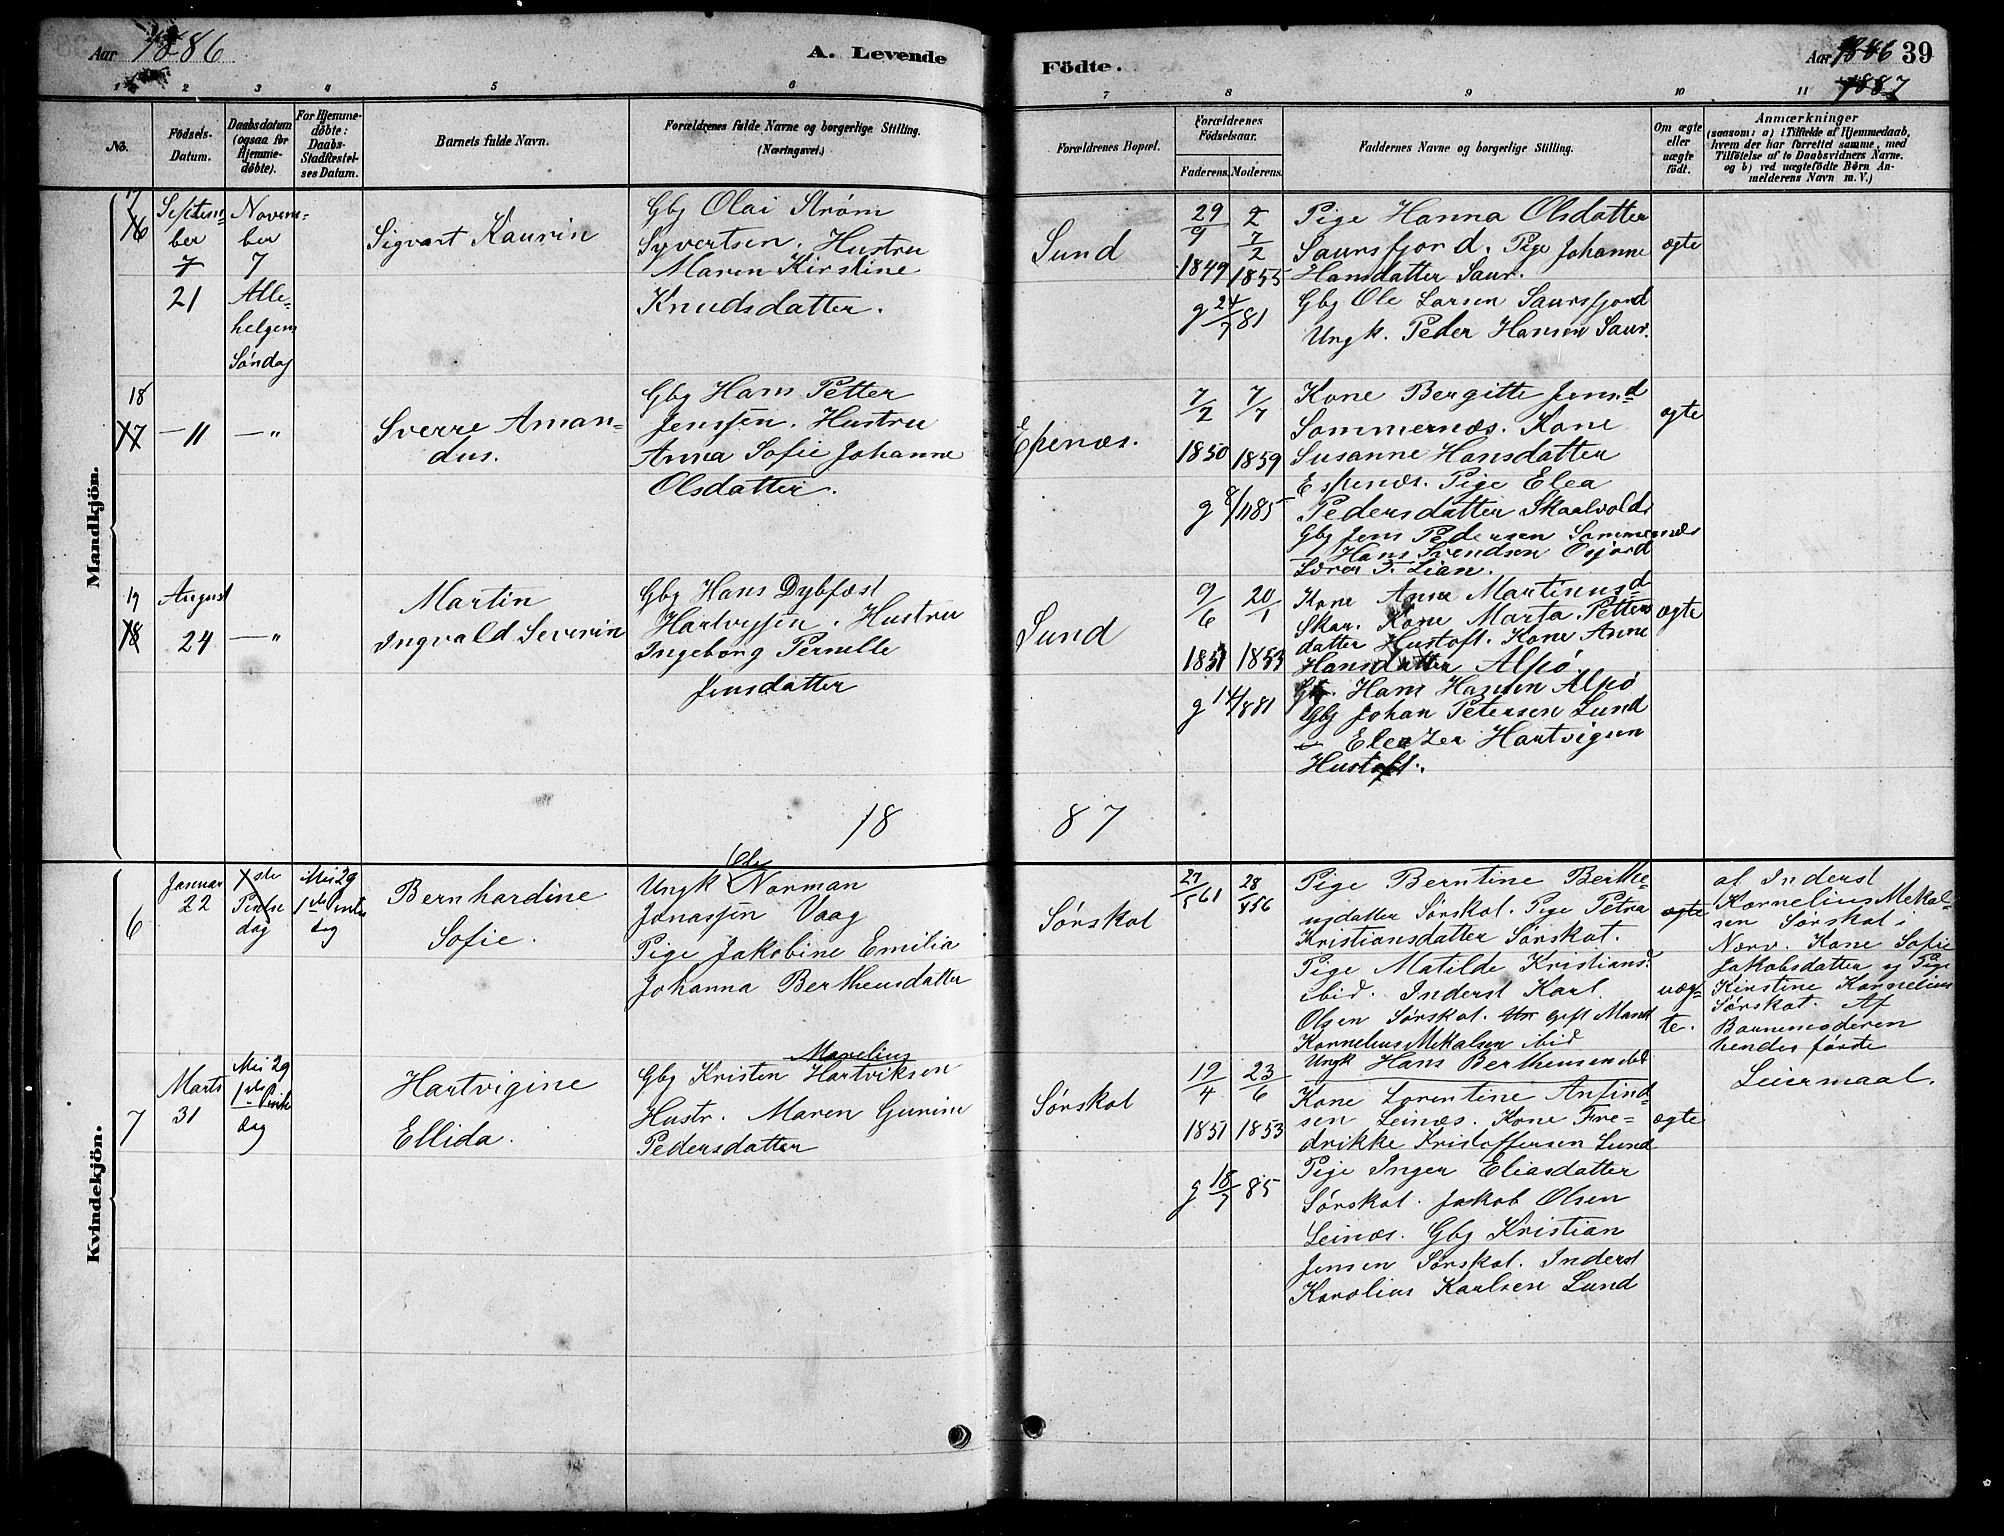 Aar 1886
A. Levende
Födte.
Aar 1886 39
1887
1 2 3 4 5 6 7 8 9 10 11
No.
Födsels-
Datum.
Daabsdatum
(ogsaa for
Hjemme-
döbte).
For Hjemme-
döbte:
Daabs-
Stadfæstel-
ses Datum.
Barnets fulde Navn.
Forældrenes fulde Navne og borgerlige Stilling.
(Næringsvei.)
Forældrenes Bopæl.
Forældrenes
Födselsaar.
Faderens.
Moderens.
Faddernes Navne og borgerlige Stilling.
Om ægte
eller
uægte
födt.
Anmærkninger
(saasom: a) i Tilfælde af Hjemmedaab,
hvem der har forrettet samme, med
Tilföielse af to Daabsvidners Navne.
og b) ved uægtefödte Börn An-
melderens Navn m. V.)
Mandkjön.
17
16
Septem-
ber
7
21
Novem-
ber
7
Alle-
helgens
Søndag
Sigvart Kaurin
Gbg Olai Strøm
Syvertsen. Hustru
Maren Kirstine
Knudsdatter.
Sund
29/9
1849
2
7/2
1855
g 24/7 81
Pige Hanna Olsdatter
Saursfjord. Pige Johanne
Hansdatter Saur.
Gbg Ole Larsen Saursfjord
Ungk. Peder Hansen Saur.
ægte
18
17
— 11
— "
Sverre Aman-
dus.
Gbg Hans Petter
Jenssen. Hustru
Anna Sofie Johanne
Olsdatter.
Espenæs.
7/2
1850
7/7
1859
g 8/11 85
Kone Bergitte Jensd
Sommernæs. Kone
Susanne Hansdatter
Espenæs. Pige Elea
Pedersdatter Skaalvold
Gbg Jens Pedersen Sommernæs
Hans Svendsen Osjord
Lærer T. Lian.
ægte
19
18
August
24
— "
Martin
Ingvald Severin
Gbg Hans Dybfæst
Hartvigsen. Hustru
Ingeborg Pernelle
Jensdatter
Sund
9/6
1851
20/1
1853
g 14/8 81
Kone Anne Martinusd
Skar. Kone Marta Petters
datter Hustoft. Kone Anne
Hansdatter Alpø
Gbg. Hans Hansen Alpø
Gbg Johan Petersen Lund
— Eleazer Hartvigsen
Hustoft.
ægte
18
87
Kvindekjön.
6
Januar
22
1ste
Pintse
dag
Mai 29
1ste Pintse
dag
Bernhardine
Sofie.
Ole
Ungk Norman
Jonassen Vaag
Pige Jakobine Emilia
Johanna Bertheusdatter
Sørskot
27/5 61
28/8 56
Pige Berntine Berthe-
usdatter Sørskot. Pige Petra
Kristiansdatter Sørskot.
Pige Matilde Kristiansd.
ibid. Inderst Karl
Olsen Sørskot. gift Mand
Kornelius Mekalsen ibid
Ungk Hans Bertheusen ibid
ægte
uæg-
te.
af Inderst
Kornelius Mekal-
sen Sørskot i
Nærv. Kone Sofie
Jakobsdatter og Pige
Kirstine Kornelius
Sørskot. Af
Barnemoderen
hendes første
Leiermaal.
7
Marts
31
Mai 29
1ste Pintse
dag
Hartvigine
Ellida.
Marelius
Gbg Kristen Hartviksen
Hustr. Maren Gurine
Pedersdatter
Sørskot
19/4
1851
23/6
1853
g 18/7 85
Kone Lorentine Anfind-
sen Leinæs. Kone Fre-
drikke Kristoffersen Lund
Pige Inger Eliasdatter
Sørskot. Jakob Olsen
Leinæs. Gbg Kristian
Jensen Sørskot. Inderst
Karolius Karlsen Lund
ægte